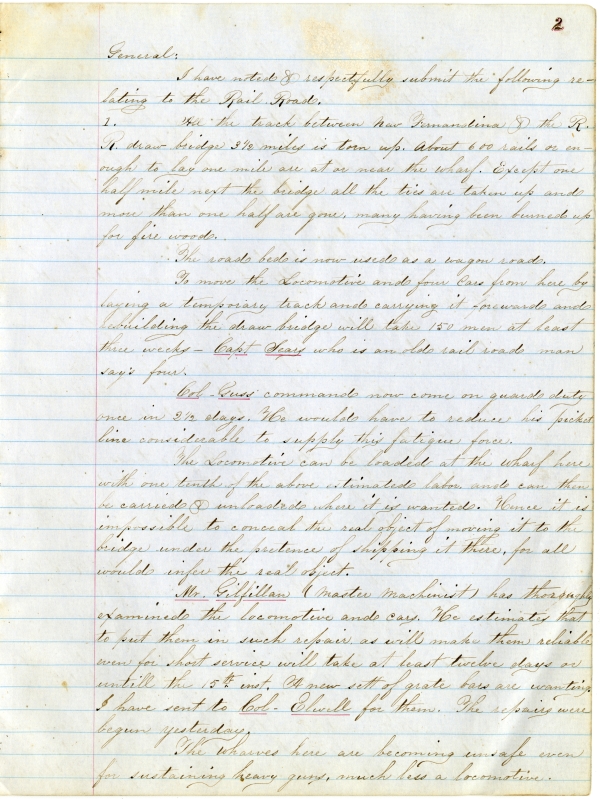 2
General:
I have noted & respectfully submit the following re-
lating to the Rail Road.
1. All the track between New Fernandina & the R.
R. draw bridge 3½ miles is torn up. About 600 rails or en-
ough to lay one mile are at or near the wharf. Except one
half mile next the bridge all the ties are taken up and
more than one half are gone, many having been burned up
for fire wood.
The road bed is now used as a wagon road.
To move the Locomotive and four Cars from here by
laying a temporary track and carrying it forward and
rebuilding the draw bridge will take 150 men at least
three weeks – Capt Sears who is an old rail road man
says four.
Col. Guss' command now come on guard duty
once in 2½ days. He would have to reduce his picket
line considerable to supply this fatigue force.
The Locomotive can be loaded at the wharf here
with one tenth of the above estimated labor and can then
be carried & unloaded where it is wanted. Hence it is
impossible to conceal the real object of moving it to the
bridge under the pretence of shipping it there, for all
would infer the real object.
Mr. Gilfillan (Master Machinist) has thoroughly
examined the locomotive and cars. He estimates that
to put them in such repair as will make them reliable
even for short service will take at least twelve days or
untill the 15th inst. A new sett of grate bars are wanting.
I have sent to Col. Elwell for them. The repairs were
begun yesterday.
The wharves here are becoming unsafe even
for sustaining heavy guns, much less a locomotive.